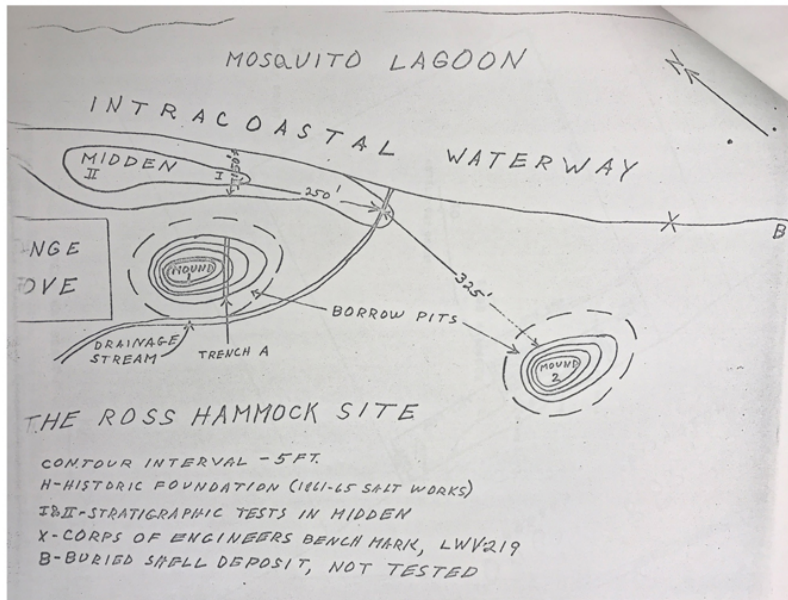 MOSQUITO LAGOON
N
INTRACOASTAL WATERWAY
MIDDEN
II
I
250'
X
B
NGE
OVE
MOUND
1
325'
BORROW PITS
DRAINAGE
STREAM
TRENCH A
MOUND
2
THE ROSS HAMMOCK SITE
CONTOUR INTERVAL - 5 FT.
H-HISTORIC FOUNDATION (1861-65 SALT WORKS)
I&II-STRATIGRAPHIC TESTS IN MIDDEN
X-CORPS OF ENGINEERS BENCH MARK, LWV219
B-BURIED SHELL DEPOSIT, NOT TESTED